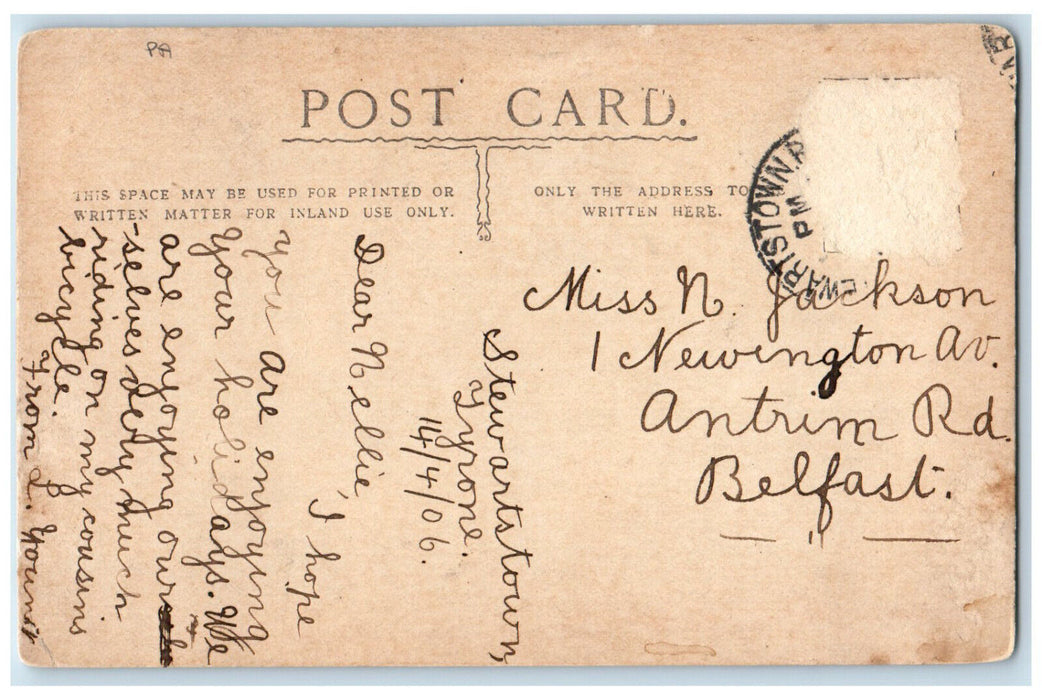 PA
POST CARD.
THIS SPACE MAY BE USED FOR PRINTED OR
WRITTEN MATTER FOR INLAND USE ONLY.
ONLY THE ADDRESS TO
WRITTEN HERE.
EWARTSTOWN.R
PM
AR
Miss N. Jackson
1 Newington Av.
Antrim Rd.
Belfast.
Stewartstown,
Tyrone.
14/4/06.
Dear Nellie,
I hope
you are enjoying
your holidays. We
are enjoying our
-selves very much
riding on my cousins
bicycle.
From L.